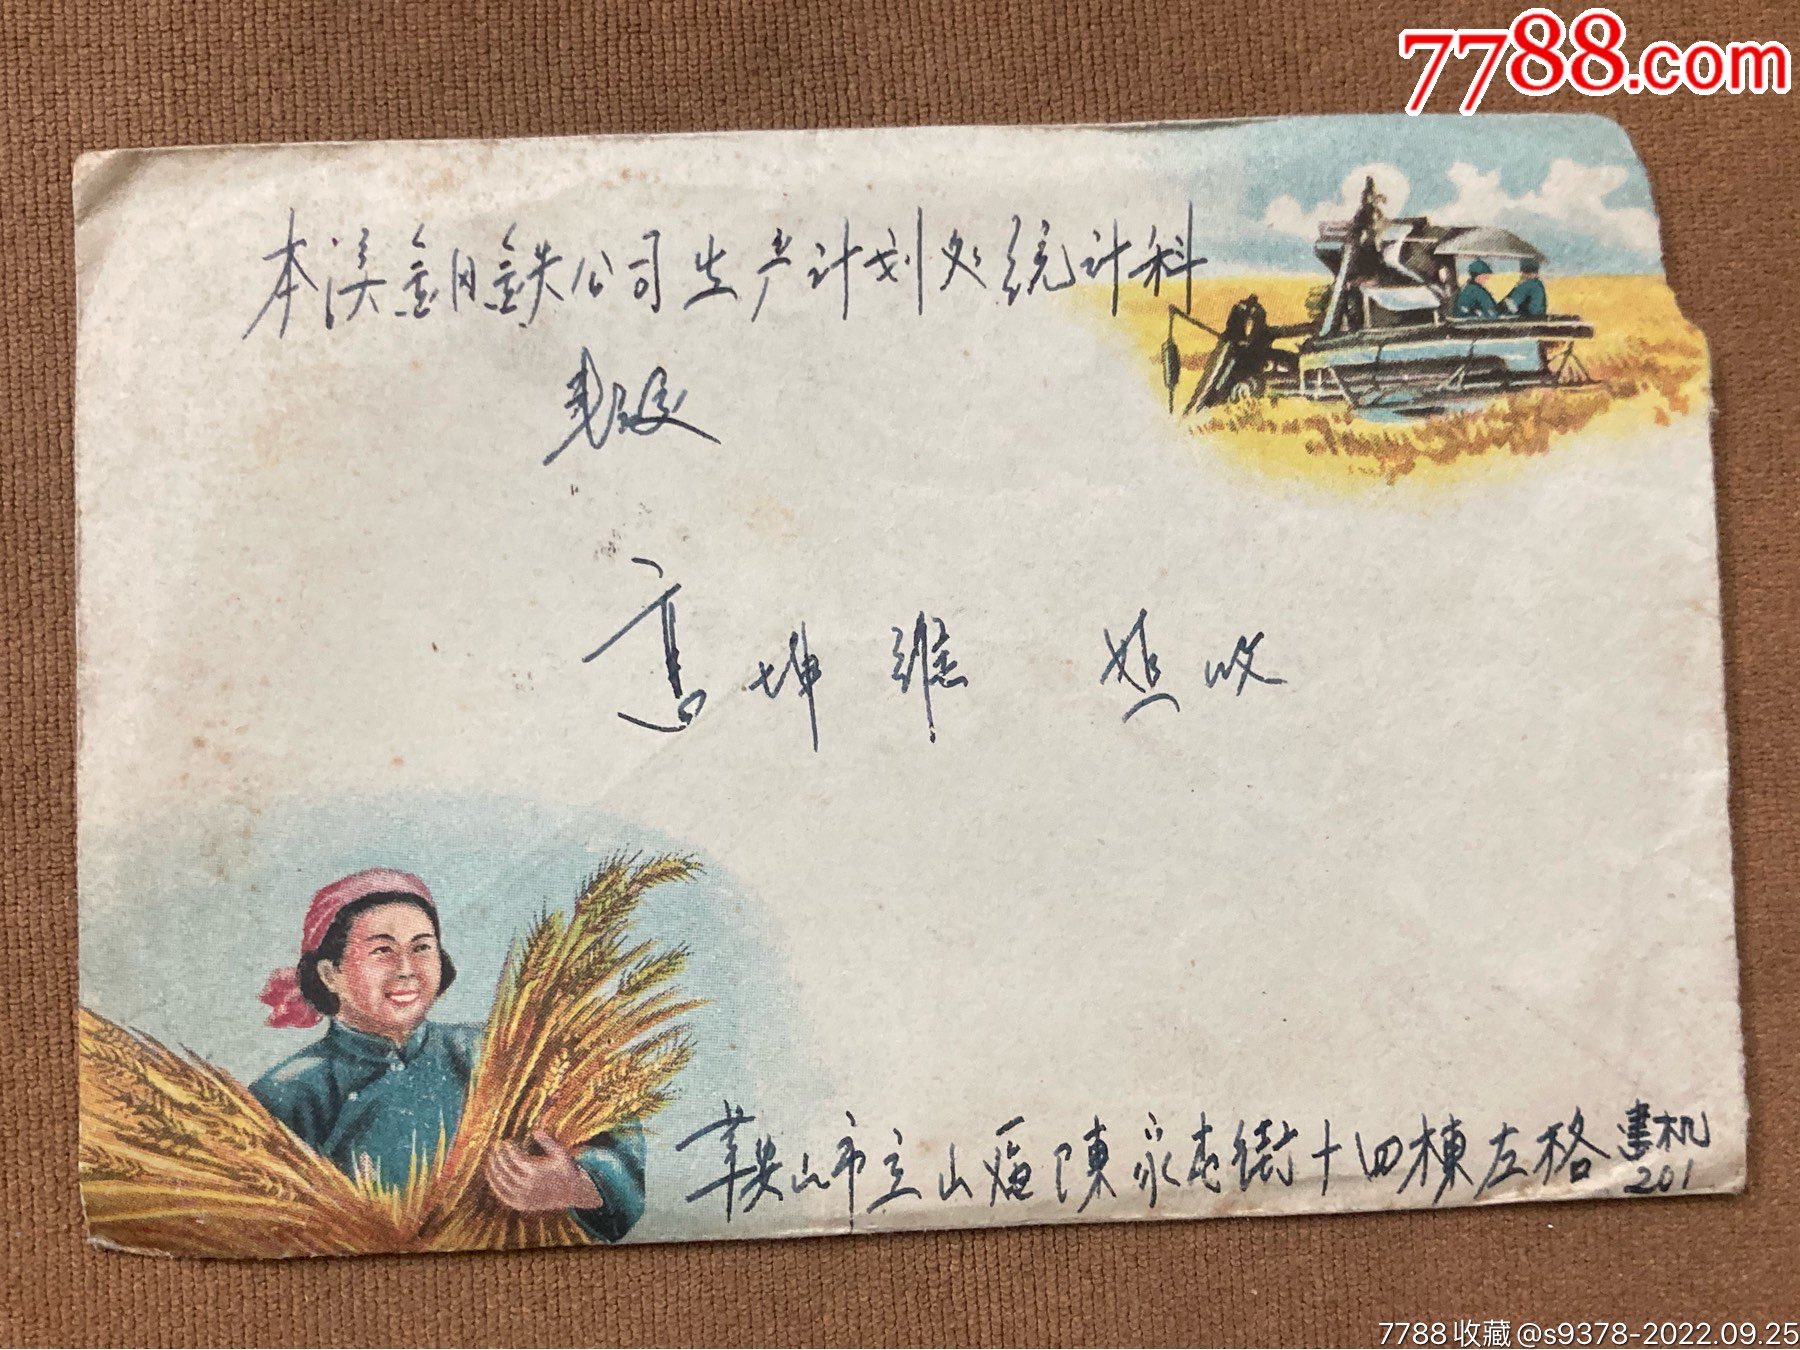 7788.com
本溪鋼鉄公司生产计划処统计科
高坤維 收
鞍山市立山區陳永志街十四棟左格
201
7788收藏@s9378-2022.09.25